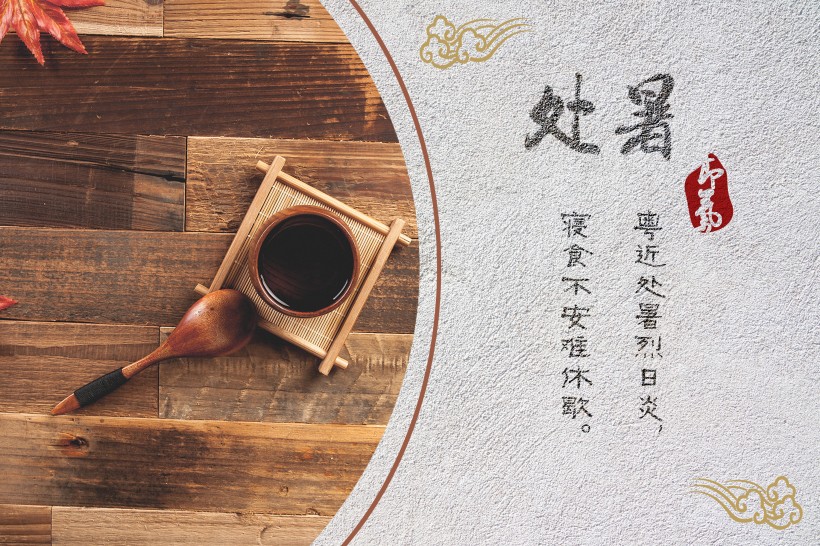 处暑
粤近处暑烈日炎，
寝食不安难休歇。